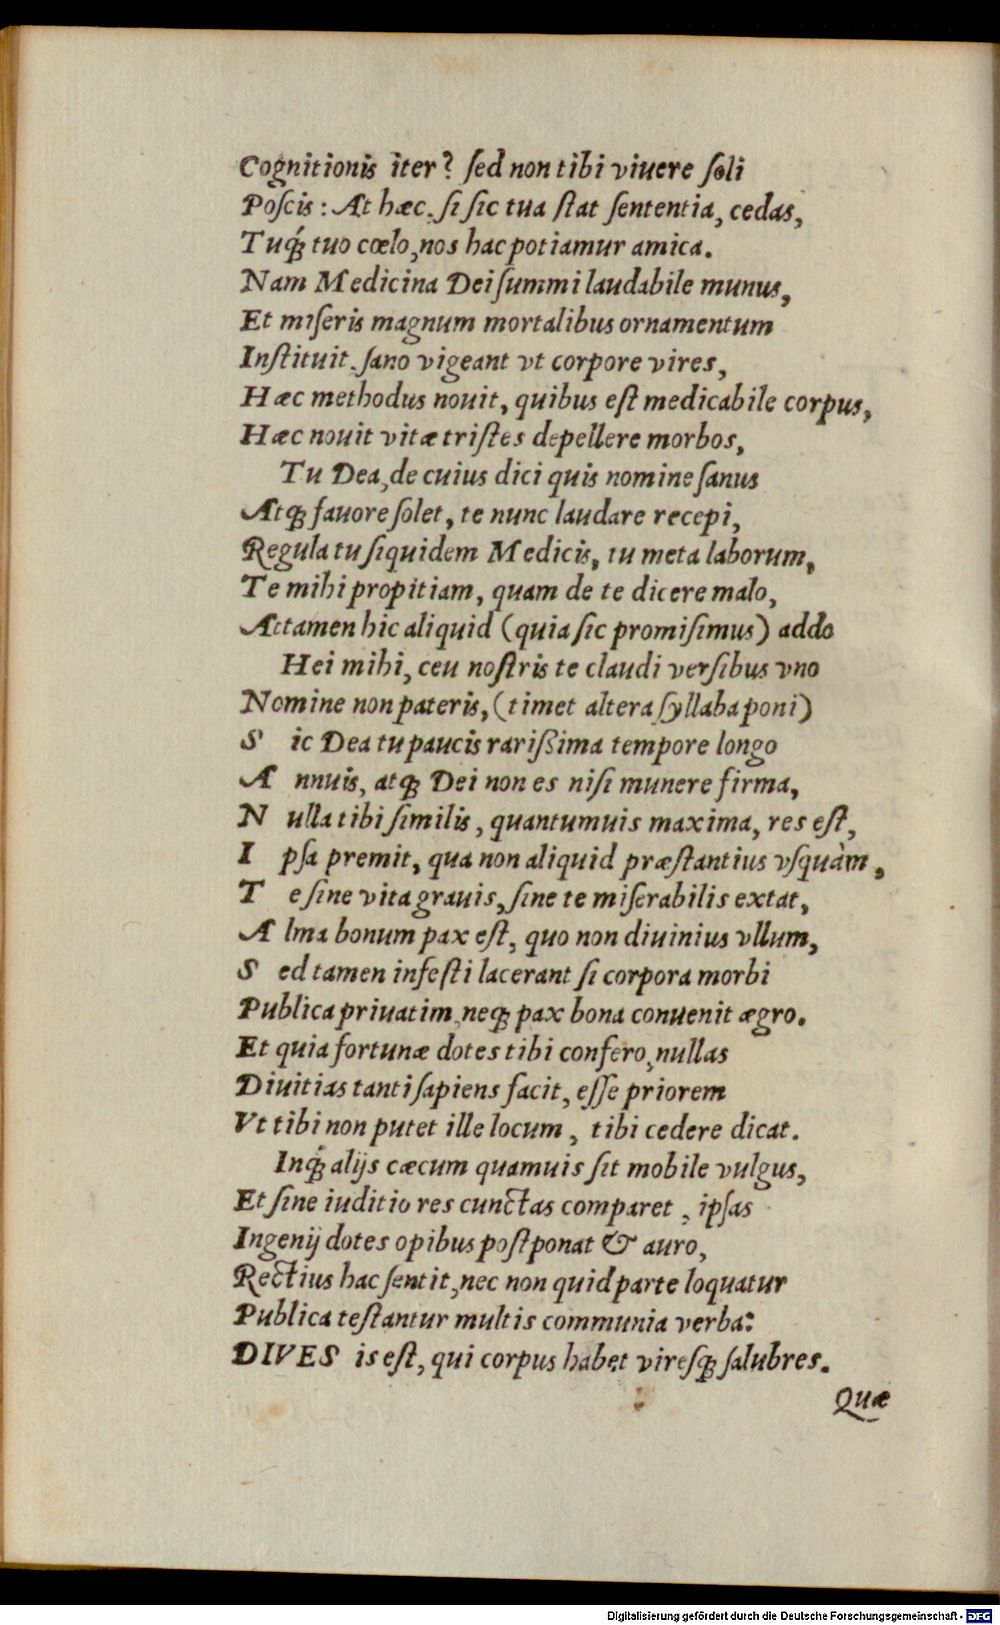 Cognitionis iter? ſed non tibi viuere ſoli
Poſcis: At hæc, ſi ſic tua ſtat ſententia, cedas,
Tuq́; tuo cœlo, nos hac potiamur amica.
Nam Medicina Dei ſummi laudabile munus,
Et miſeris magnum mortalibus ornamentum
Inſtituit, ſano vigeant vt corpore vires,
Hæc methodus nouit, quibus eſt medicabile corpus,
Hæc nouit vitæ triſtes depellere morbos,
Tu Dea, de cuius dici quis nomine ſanus
Atq; fauore ſolet, te nunc laudare recepi,
Regula tu ſiquidem Medicis, tu meta laborum,
Te mihi propitiam, quam de te dicere malo,
Attamen hic aliquid (quia ſic promiſimus) addo
Hei mihi, ceu noſtris te claudi verſibus vno
Nomine non pateris, (timet altera ſyllaba poni)
S ic Dea tu paucis rariſſima tempore longo
A nnuis, atq; Dei non es niſi munere firma,
N ulla tibi ſimilis, quantumuis maxima, res eſt,
I pſa premit, qua non aliquid præſtantius vſquàm,
T e ſine vita grauis, ſine te miſerabilis extat,
A lma bonum pax eſt, quo non diuinius vllum,
S ed tamen infeſti lacerant ſi corpora morbi
Publica priuatim, neq; pax bona conuenit ægro.
Et quia fortunæ dotes tibi confero, nullas
Diuitias tanti ſapiens facit, eſſe priorem
Vt tibi non putet ille locum, tibi cedere dicat.
Inq́; alijs cæcum quamuis ſit mobile vulgus,
Et ſine iuditio res cunctas comparet, ipſas
Ingenij dotes opibus poſtponat & auro,
Rectius hac ſentit, nec non quid parte loquatur
Publica teſtantur multis communia verba:
DIVES is eſt, qui corpus habet vireſq; ſalubres.
Quæ
Digitalisierung gefördert durch die Deutsche Forschungsgemeinschaft - DFG